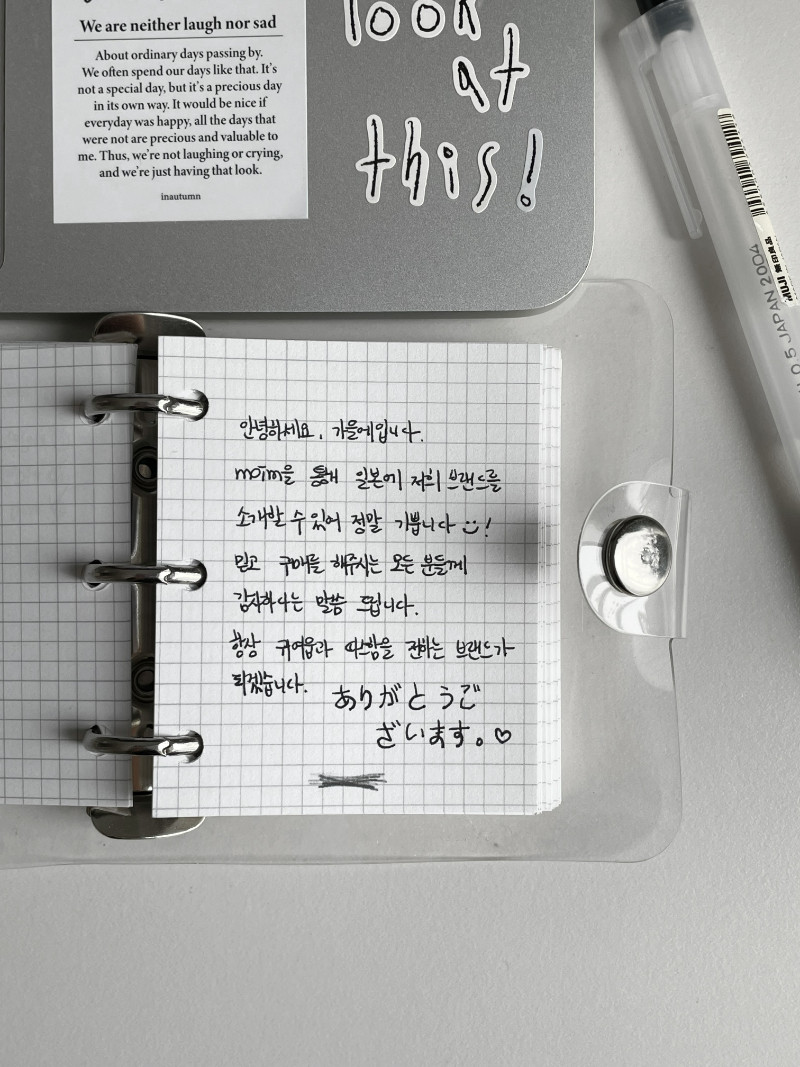 We are neither laugh nor sad
About ordinary days passing by.
We often spend our days like that. It's
not a special day, but it's a precious day
in its own way. It would be nice if
everyday was happy, all the days that
were not are precious and valuable to
me. Thus, we're not laughing or crying,
and we're just having that look.
inautumn
look
at
this!
MUJI 無印良品
0.5 JAPAN 2004
안녕하세요, 가을에입니다.
moim을 통해 일본에 저희 브랜드를
소개할 수 있어 정말 기쁩니다 :)!
믿고 구매를 해주시는 모든 분들께
감사하다는 말씀 드립니다.
항상 귀여움과 따스함을 전하는 브랜드가
되겠습니다.
ありがとうご
ざいます。♡